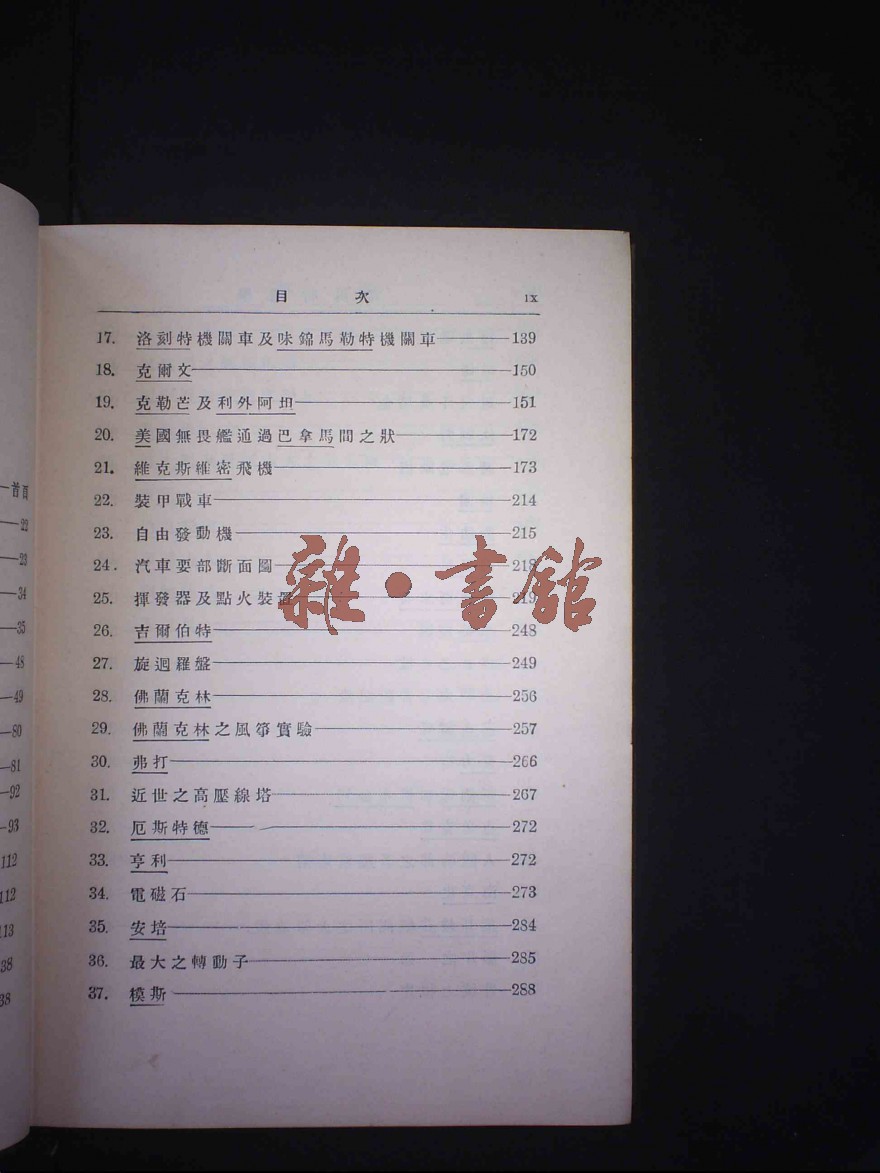 目次 IX
17. 洛刻特機關車及味錦馬勒特機關車 139
18. 克爾文 150
19. 克勒芒及利外阿坦 151
20. 美國無畏艦通過巴拿馬間之狀 172
21. 維克斯維密飛機 173
22. 裝甲戰車 214
23. 自由發動機 215
24. 汽車要部斷面圖 218
25. 揮發器及點火裝置 219
26. 吉爾伯特 248
27. 旋迴羅盤 249
28. 佛蘭克林 256
29. 佛蘭克林之風箏實驗 257
30. 弗打 266
31. 近世之高壓線塔 267
32. 厄斯特德 272
33. 亨利 272
34. 電磁石 273
35. 安培 284
36. 最大之轉動子 285
37. 模斯 288
雜·書館
首頁
22
23
34
35
48
49
80
81
92
93
112
112
113
38
38